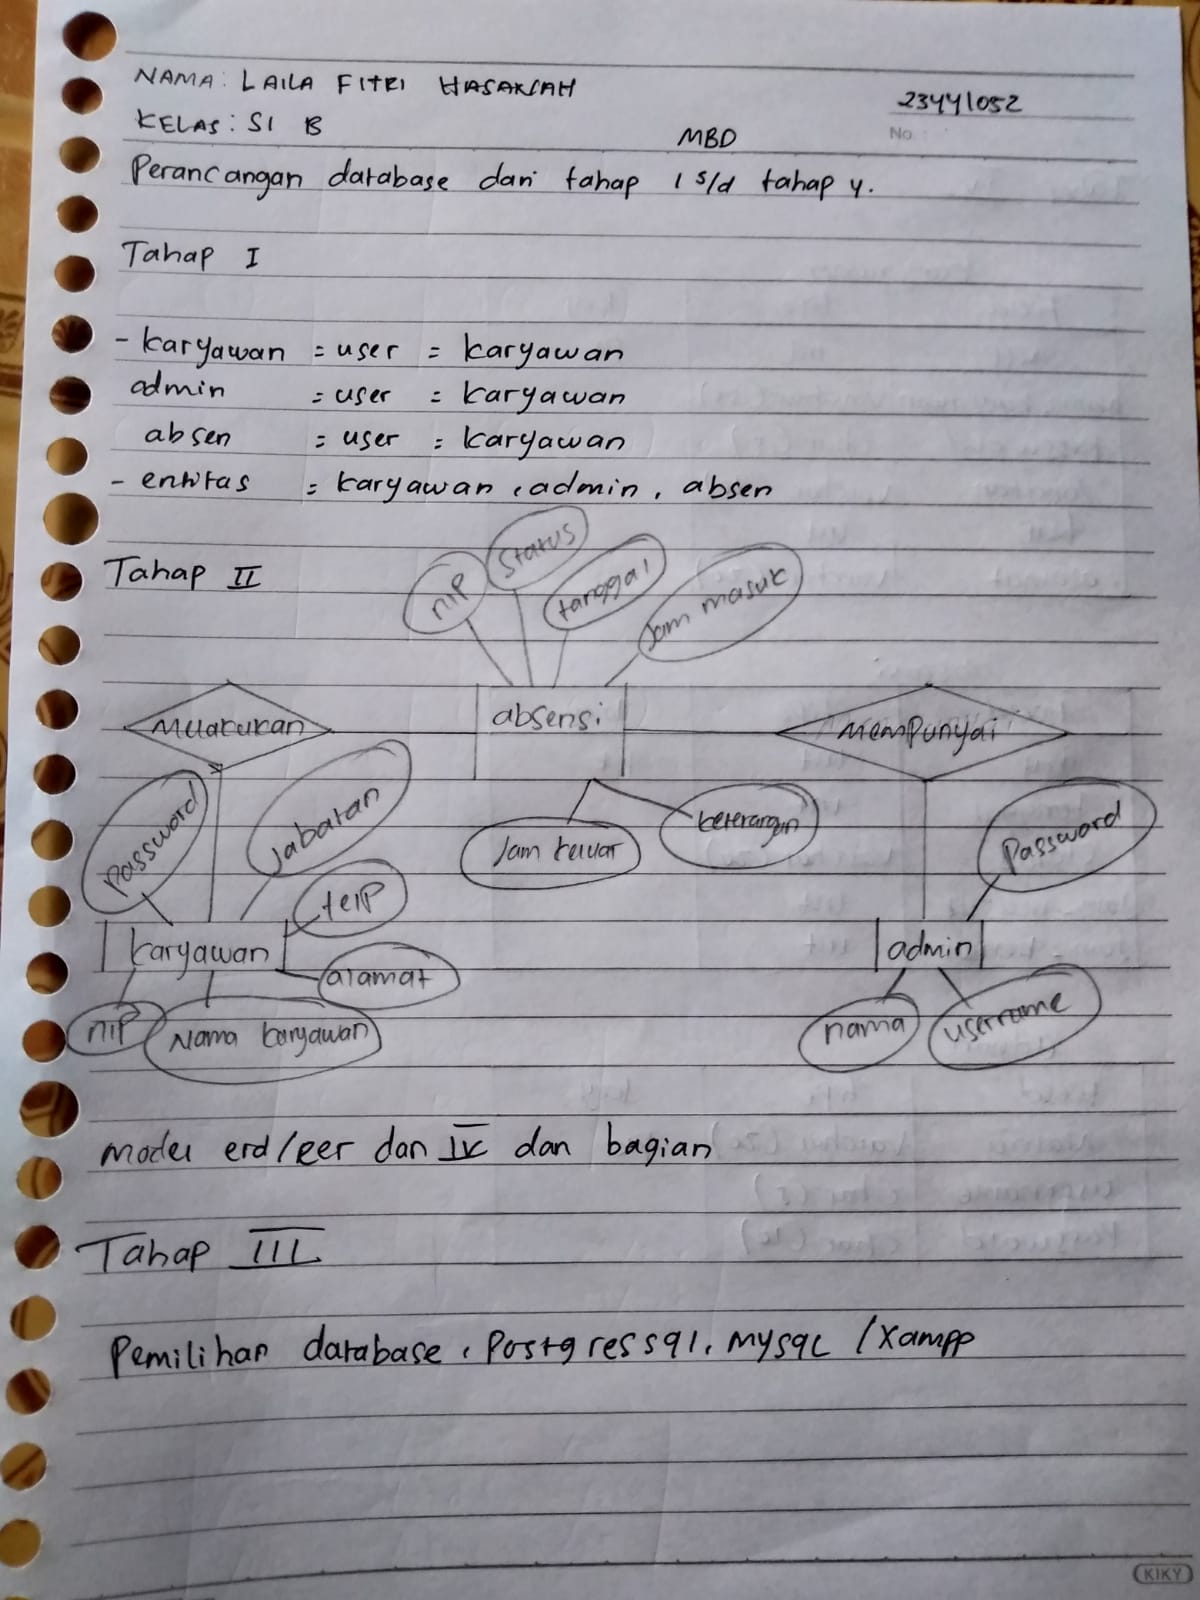 NAMA: LAILA FITRI HASANAH
23441052
KELAS: SI B
No :
MBD
Perancangan database dari tahap 1 s/d tahap 4.
Tahap I
- karyawan = user = karyawan
admin = user = karyawan
absen = user = karyawan
- entitas = karyawan, admin, absen
Tahap II
nip
status
tanggal
Jam masuk
Melakukan
absensi
Mempunyai
Password
Jabatan
Jam keluar
keterangan
Password
telp
karyawan
admin
alamat
nip
Nama karyawan
nama
username
model erd/eer dan IV dan bagian
Tahap III
Pemilihan database, Postgressql, Mysql / Xampp
KIKY